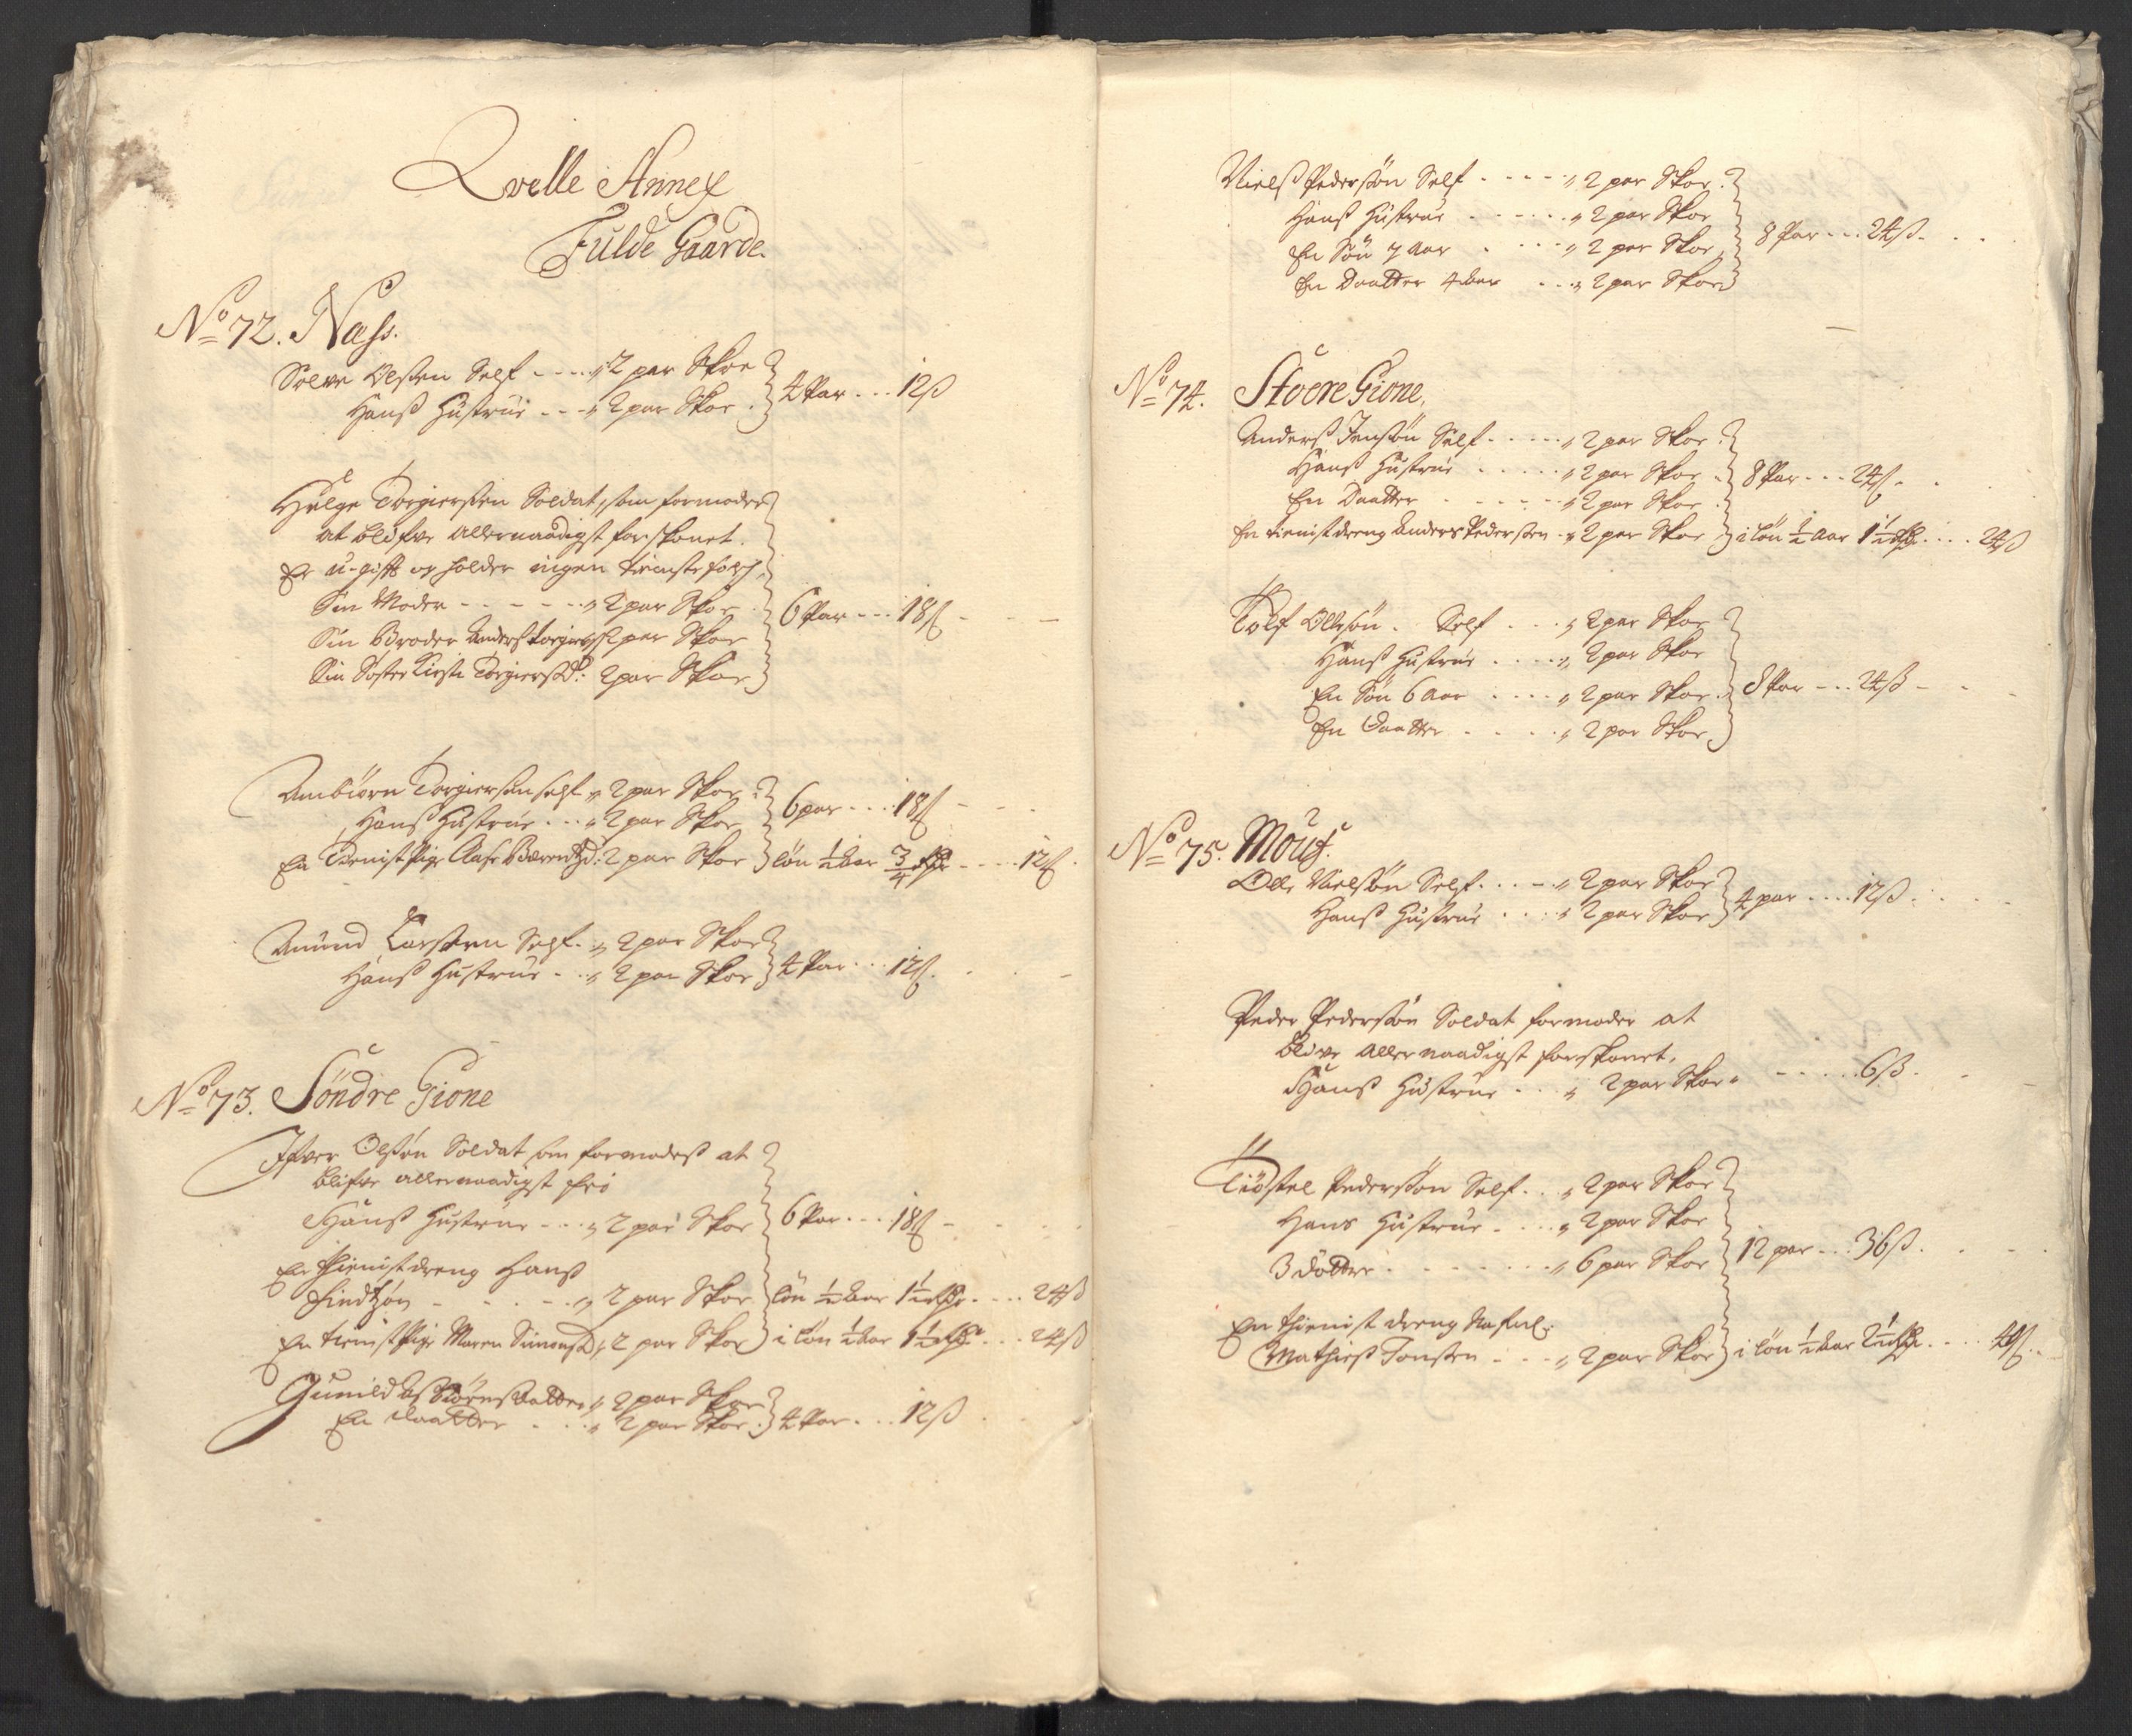 Qvelle Annex
Fulde Gaarde.
No 72. Næss.
Solve Olssen Self - - - - 2 par Skoe
Hanss Hustrue - - - 2 par Skoe } 4 Par - - - 12 ß
Helge Torgiersen Soldat, som formoder
at blifve allernaadigst forskonet.
Er u-gift og holder ingen tienistefolch,
Sin Moder - - - - - - 2 par Skoe
Sin Broder Anders Torgiers: 2 par Skoe } 6 Par - - - 18 ß
Sin Søster Kirsti Torgiersd: 2 par Skoe
Ambiørn Torgiersen self 2 par Skoe
Hanss Hustrue - - - 2 par Skoe } 6 par - - - 18 ß
En Tienist Pige Aase d: 2 par Skoe } løn ½ Aar ¾ rdr - - - - 12 ß
Amund Larssen Self - 2 par Skoe
Hanss Hustrue - - 2 par Skoe } 4 Par - - - 12 ß
No 73. Söndre Gione
Ifver Olssøn Soldat som formodess at
blifve allernaadigst fri
Hanss Hustrue - - - 2 par Skoe } 6 Par - - - 18 ß
En thienistdreng Hanss
- - - - - 2 par Skoe } løn ½ Aar 1½ rdr - - - 24 ß
En tienist Pige Maren Simensd: 2 par Skoe } i løn ½ Aar 1½ rdr - - - 24 ß
Gunild Assbiørnssdatter 2 par Skoe
En Daatter - - - 2 par Skoe } 4 Par - - - 12 ß
Nielss Pederssøn Self - - - - 2 par Skoe
Hanss Hustrue - - - - - - 2 par Skoe
En Søn 7 Aar - - - - 2 par Skoe } 8 Par - - - 24 ß
En Daatter 4 Aar - - - 2 par Skoe
No 74. Stoere Gione,
Anderss Jenssøn Self - - - - - 2 par Skoe
Hanss Hustrue - - - - - 2 par Skoe } 8 Par - - - 24 ß
En Daatter - - - - - - 2 par Skoe
En tienistdreng Anders Pederssen - 2 par Skoe } i løn ½ Aar 1½ rdr - - - - 24 ß
Rolf Ollessøn - Self - - - 2 par Skoe
Hanss Hustrue - - - - - 2 par Skoe
En Søn 6 Aar - - - - 2 par Skoe } 8 Par - - - 24 ß
En Daatter - - - - - 2 par Skoe
No 75. Mous.
Olle Nielssøn Self - - - - 2 par Skoe
Hanss Hustrue - - - - 2 par Skoe } 4 par - - - - 12 ß
Peder Pederssøn Soldat formoder at
blive allernaadigst forskonet,
Hanss Hustrue - - - 2 par Skoe - - - - - 6 ß
Kiøstel Pederssøn Self - - 2 par Skoe
Hans Hustrue - - - - 2 par Skoe
3 Døttre - - - - - - - 6 par Skoe } 12 par - - - 36 ß
En thienist dreng Nafnl:
Mathiess Jonssen - - - 2 par Skoe } i løn ½ Aar 2½ rdr - - - 40 ß